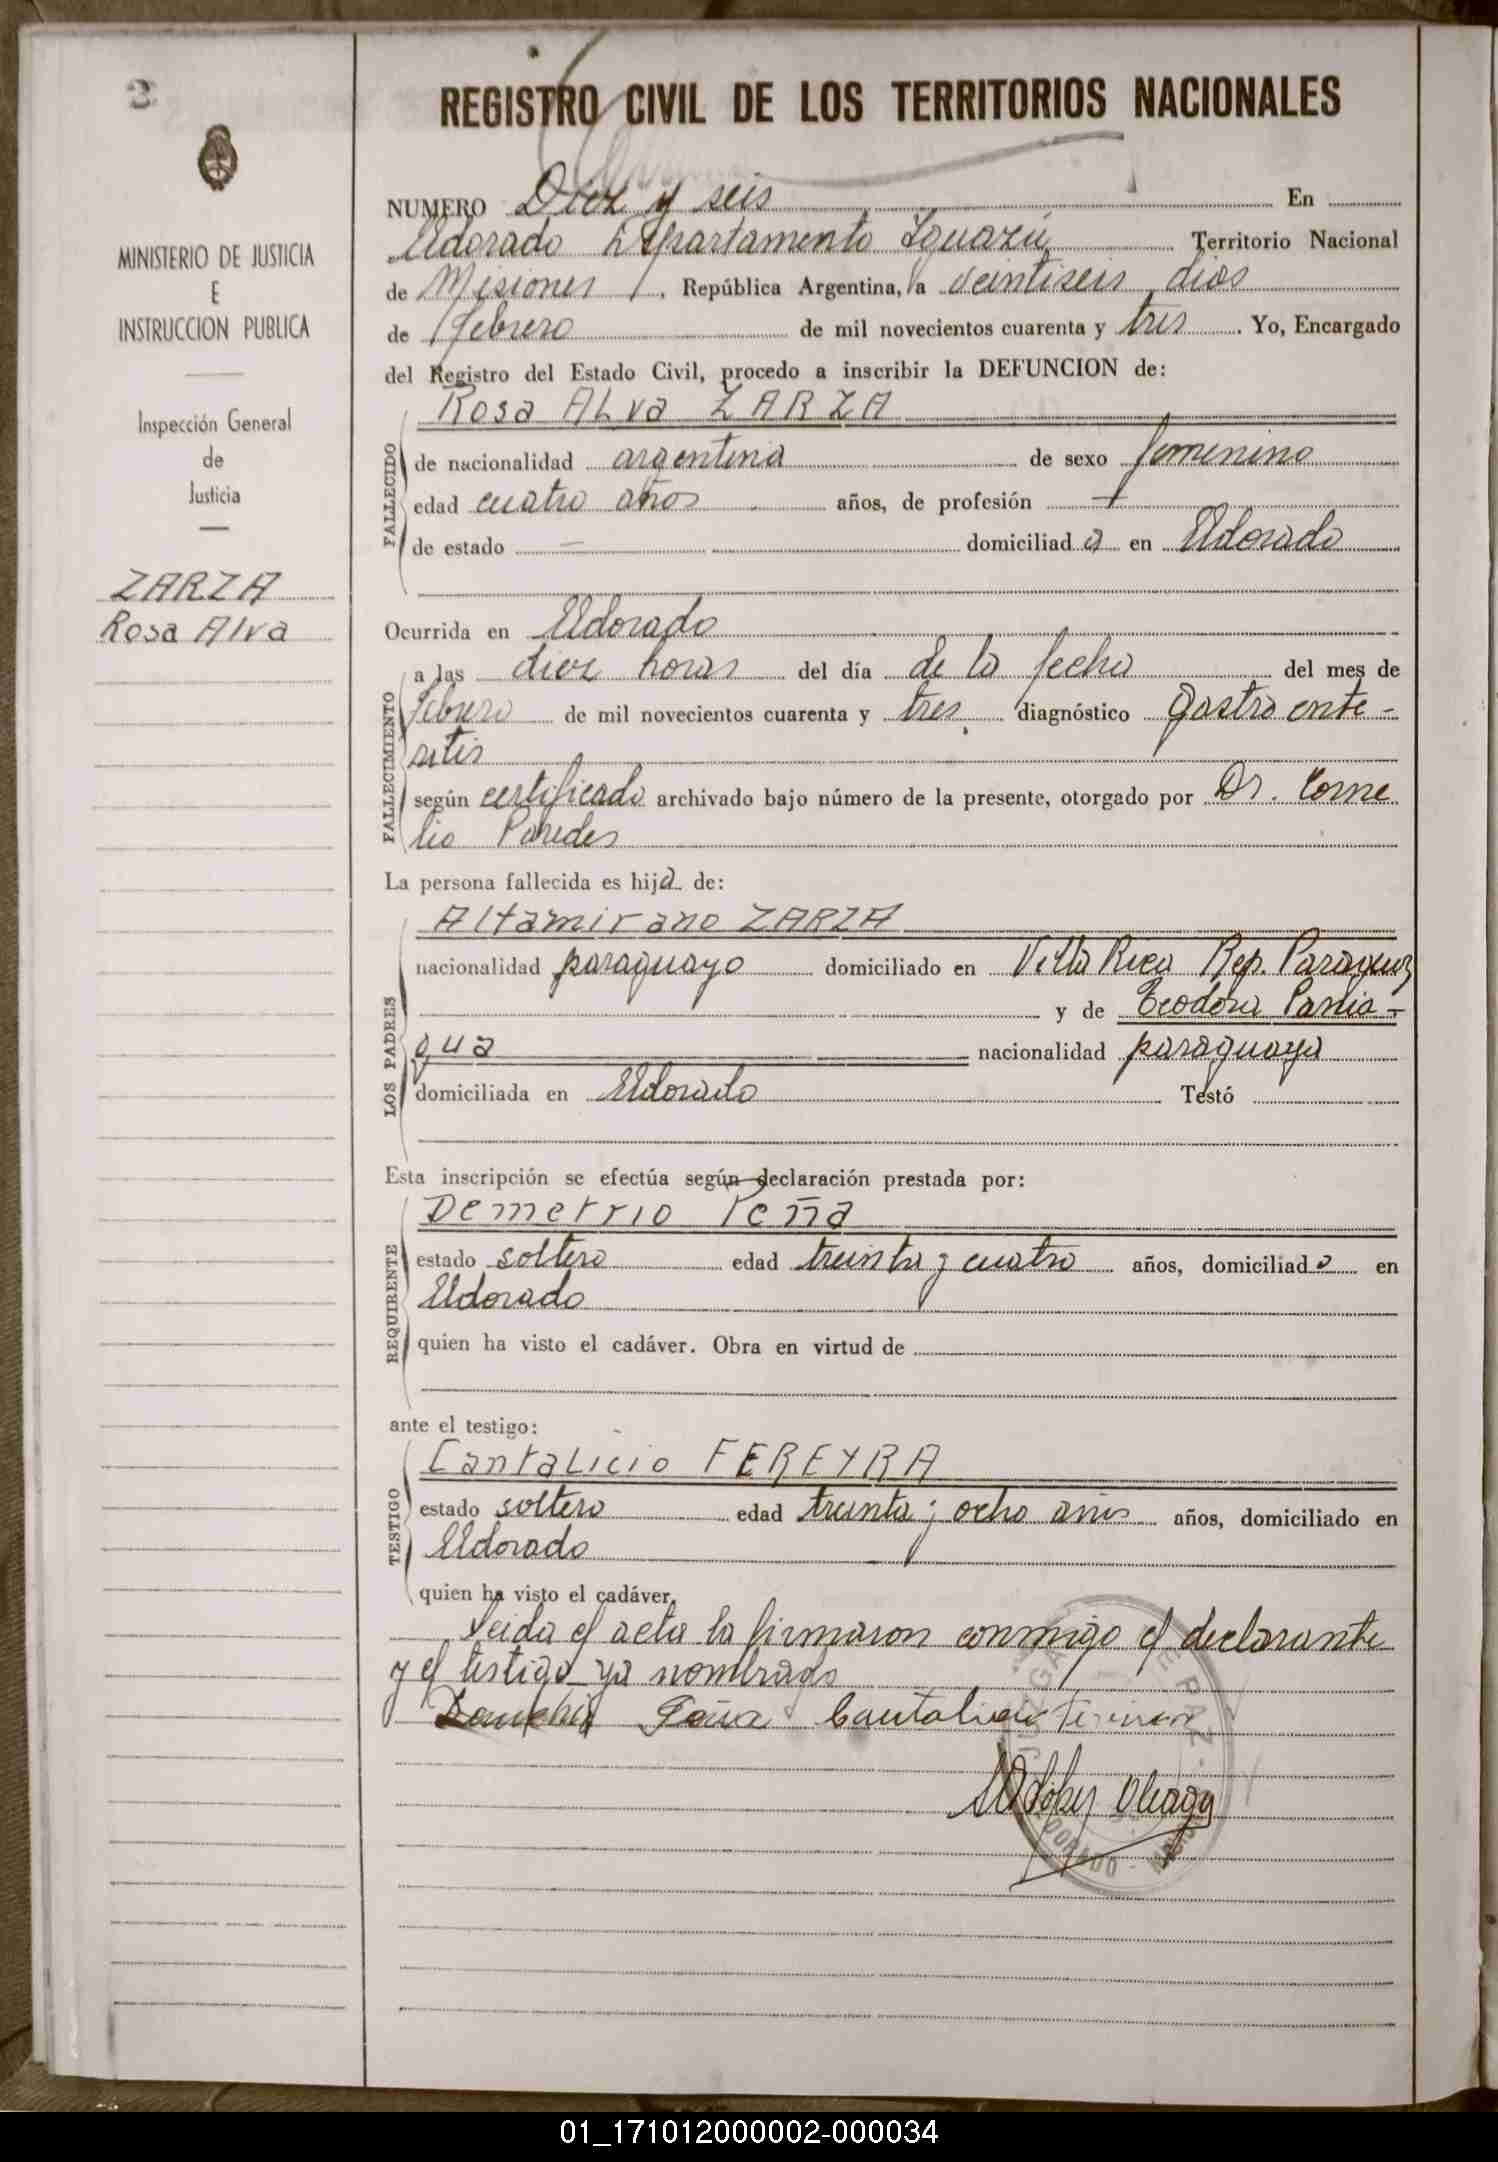 2
MINISTERIO DE JUSTICIA
E
INSTRUCCION PUBLICA
Inspección General
de
Justicia
ZARZA
Rosa Alva
REGISTRO CIVIL DE LOS TERRITORIOS NACIONALES
NUMERO Diez y seis En
Eldorado Departamento Iguazú Territorio Nacional
de Misiones, República Argentina, a veintiseis dias
de febrero de mil novecientos cuarenta y tres. Yo, Encargado
del Registro del Estado Civil, procedo a inscribir la DEFUNCION de:
FALLECIDO
Rosa ALva ZARZA
de nacionalidad argentina de sexo femenino
edad cuatro años años, de profesión
de estado — domiciliada en Eldorado
Ocurrida en Eldorado
FALLECIMIENTO
a las diez horas del día de la fecha del mes de
febrero de mil novecientos cuarenta y tres diagnóstico Gastro ente-
ritis
según certificado archivado bajo número de la presente, otorgado por Dr. Corne
lio Paredes
La persona fallecida es hija de:
LOS PADRES
Altamirano ZARZA
nacionalidad paraguayo domiciliado en Villa Rica Rep. Paraguay
y de Teodora Pania-
gua nacionalidad paraguaya
domiciliada en Eldorado Testó
Esta inscripción se efectúa según declaración prestada por:
REQUIRENTE
Demetrio Peña
estado soltero edad treinta y cuatro años, domiciliado en
Eldorado
quien ha visto el cadáver. Obra en virtud de
ante el testigo:
TESTIGO
Cantalicio FEREYRA
estado soltero edad treinta y ocho años años, domiciliado en
Eldorado
quien ha visto el cadáver.
Leida el acta la firmaron conmigo el declarante
y el testigo ya nombrado
Peña Cantalicio
JUZGADO DE PAZ
ELDORADO
01_171012000002-000034